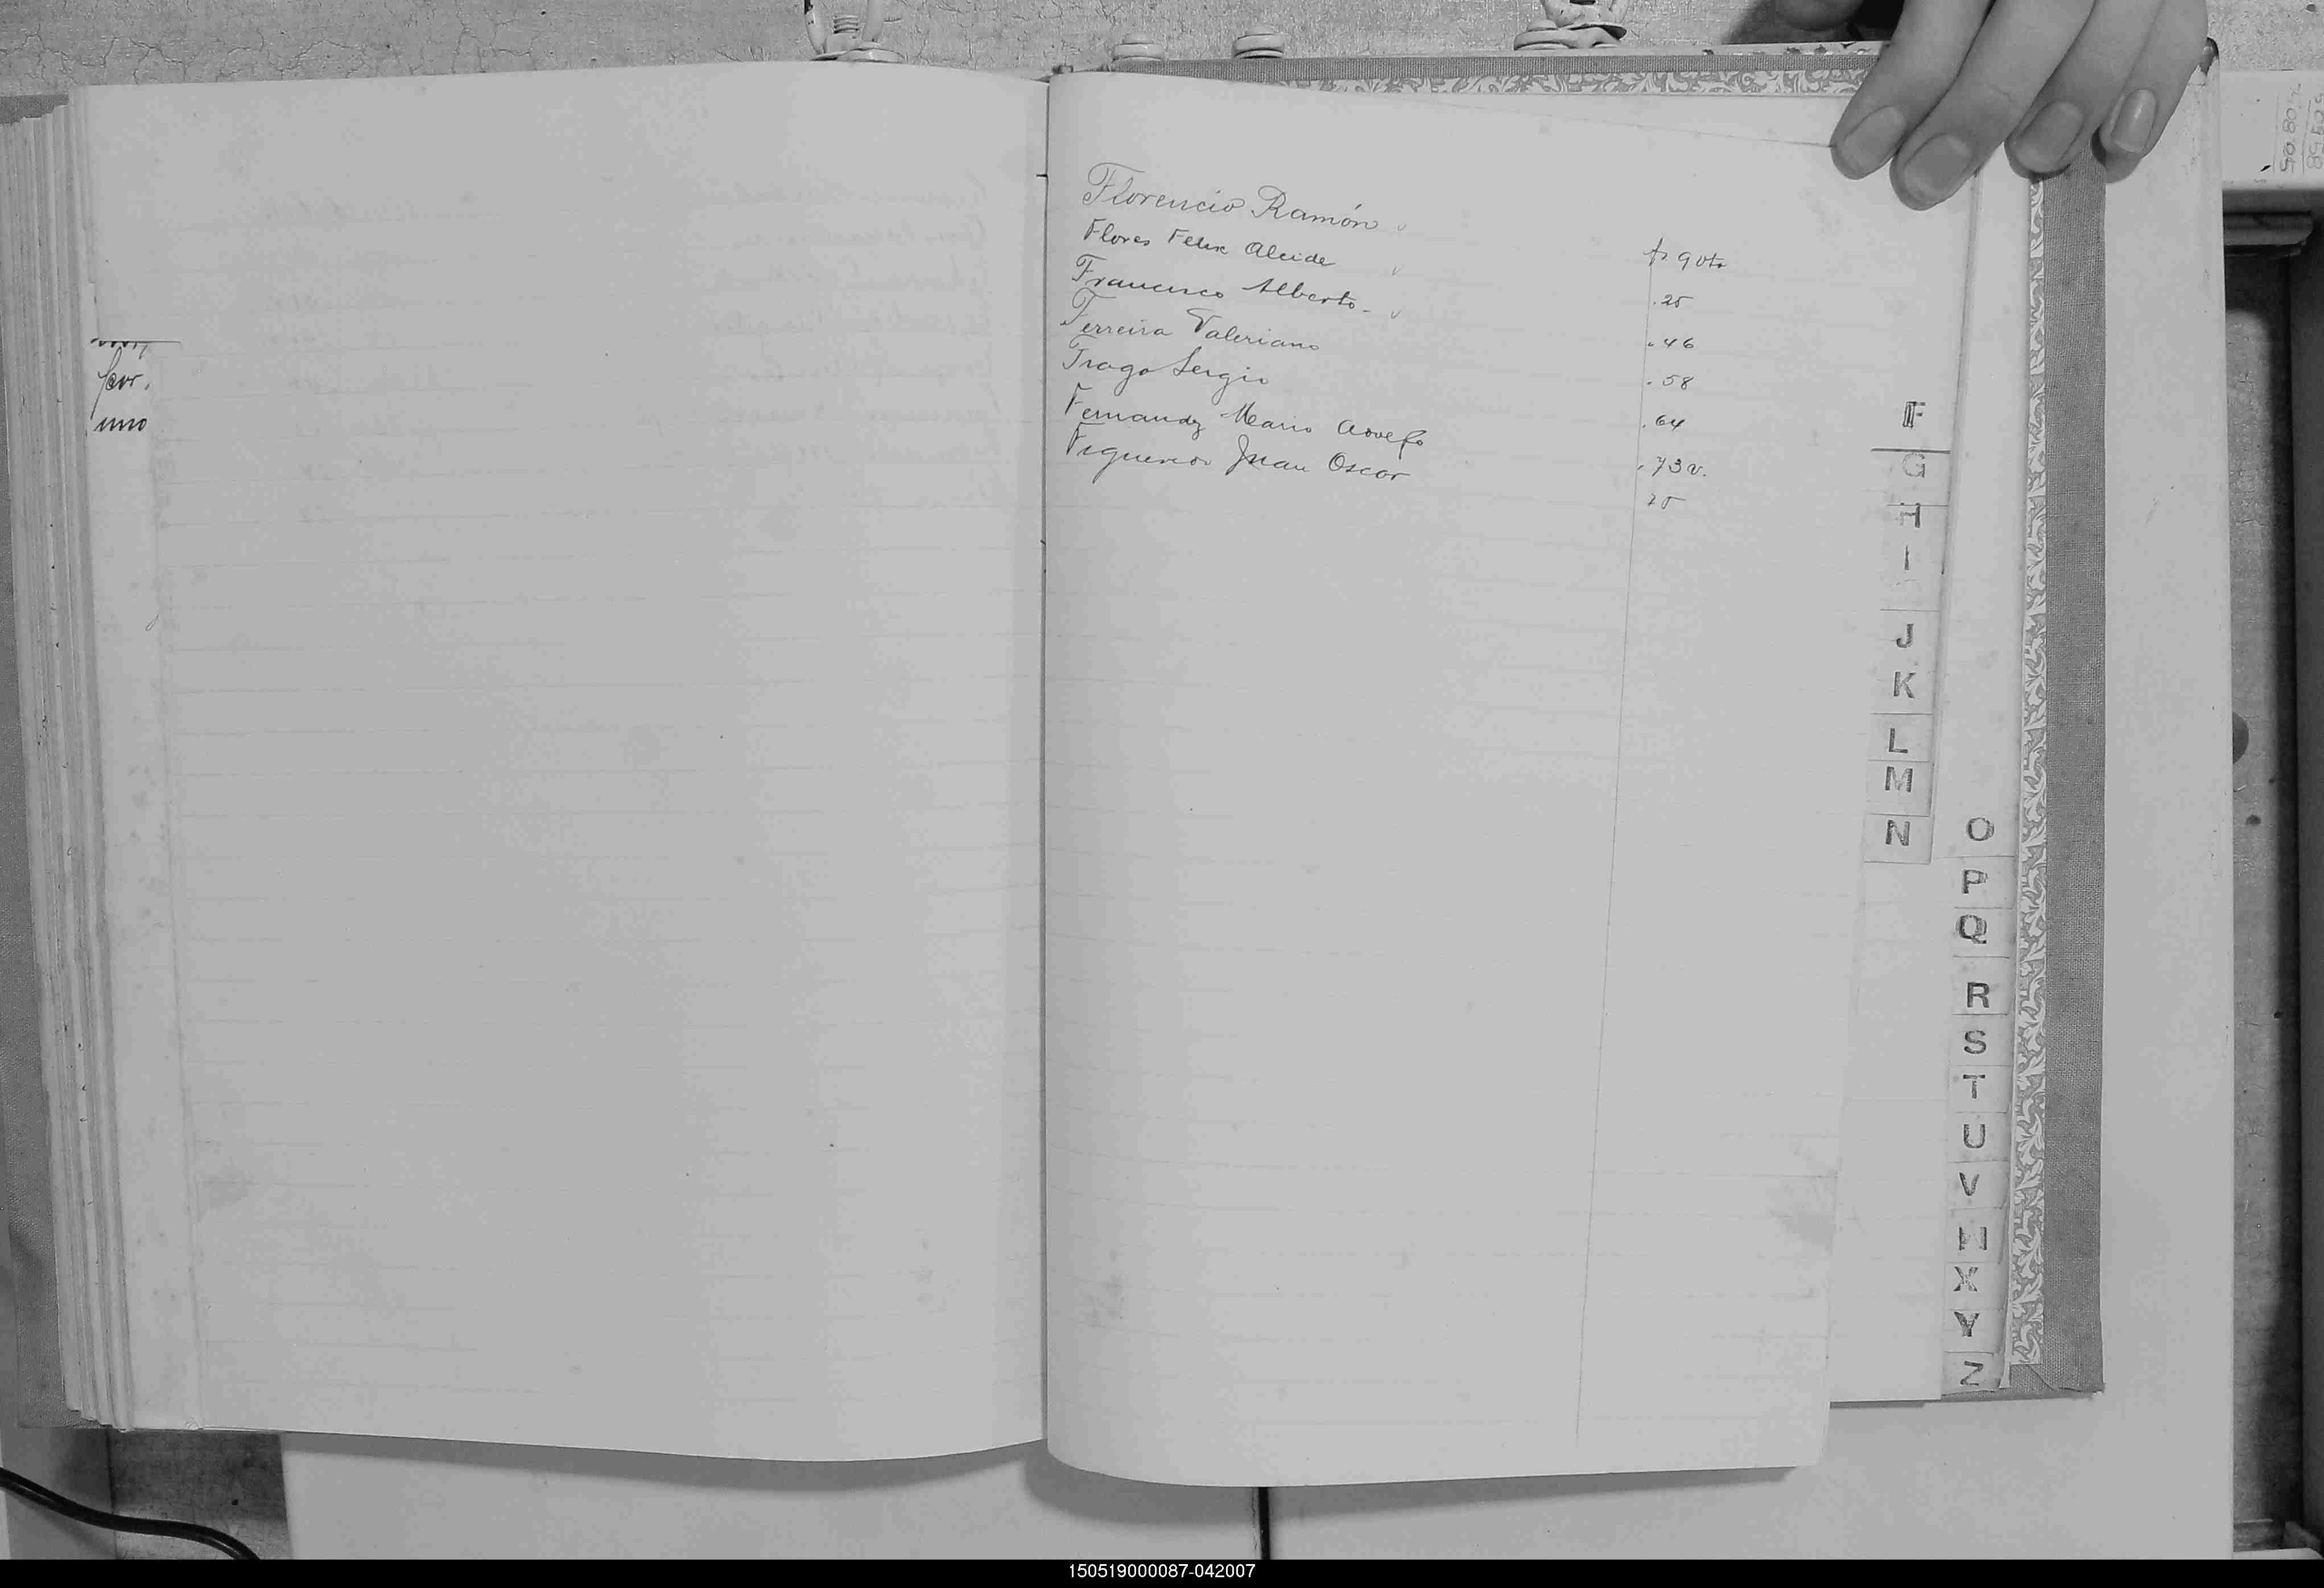 for.
uno
Florencio Ramón
fs 9 vto
Flores Felix Alcide
. 25
Francisco Alberto -
. 46
Ferreira Valeriano
. 58
Frago Sergio
. 64
Fernandz Mario Adolfo
. 73 v.
Figueredo Juan Oscar
75
F
G
H
I
J
K
L
M
N
O
P
Q
R
S
T
U
V
X
Y
Z
150519000087-042007